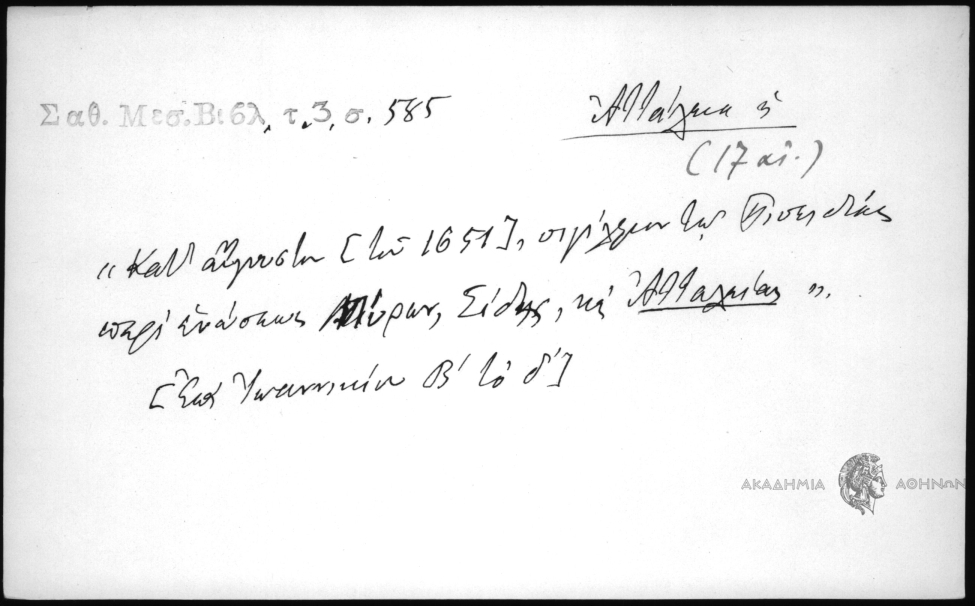 Σαθ. Μεσ. Βιβλ. τ. 3, σ. 585
Ἀττάλεια ἡ
(17 αἰ.)
" Κατ' αὔγουστον [τοῦ 1651], σιγίλλιον τῷ Πισειδίας
περὶ ἑνώσεως Μύρων, Σίδης, κ Ἀτταλείας ".
[Ἐπὶ Ἰωαννικίου Β' τὸ δ']
ΑΚΑΔΗΜΙΑ ΑΘΗΝΩΝ